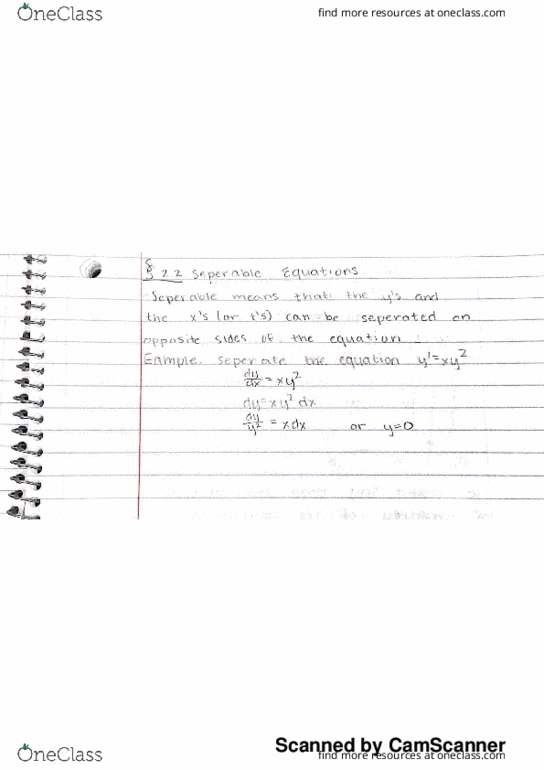 OneClass
find more resources at oneclass.com
§ 2.2 Seperable Equations
Seperable means that the y's and
the x's (or t's) can be seperated on
opposite sides of the equation.
Example. Seperate the equation y'=xy²
dy/dx = xy²
dy=xy² dx
dy/y² = x dx or y=0
Scanned by CamScanner
OneClass
find more resources at oneclass.com